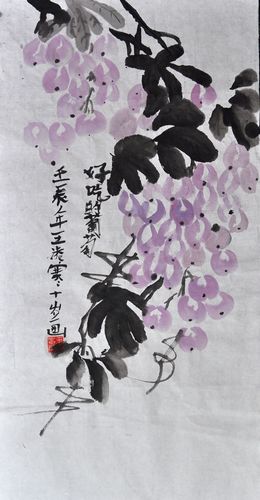 好吃的葡萄
壬辰年王寒十岁画